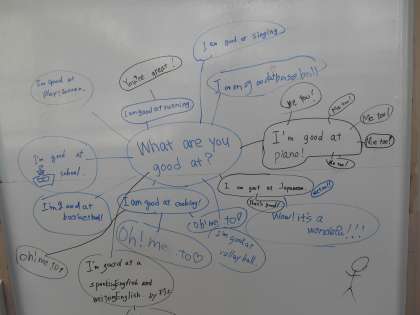 I am good at singing
You're great!
I'm good at
I am good at running
baseball
What are you
good at?
Me too!
Me too!
Me too!
Me too!
Me too!
I'm good at
piano!
I'm good at
I'm good at
basketball
I am good at cooking!
I am good at Japanese.
oh! me to!
Oh! me to♡
I'm good at
volleyball
Wow! it's a
wonderful!!!
oh! me to!
I'm good at a
speaking English and
writing English